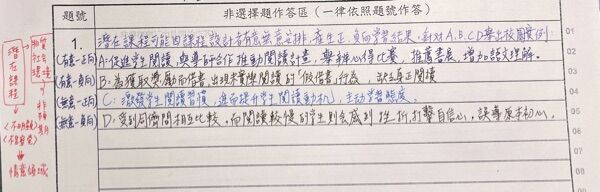 題號
非選擇題作答區（一律依照題號作答）
1.
潛在課程可能因課程設計者有意無意安排,產生正、負向學習結果,針對A.B.C.D舉出校園實例：
(有意一正向) A:促進學生閱讀,與導師合作推動閱讀計畫,舉辦心得比賽,推薦書展,增加語文理解。
(有意一負向) B:為獲取獎勵而借書,出現未實際閱讀的「假借書」行為,缺乏真正閱讀
(無意一正向) C:激發學生閱讀習慣,進而提升學生閱讀動機,主動學習態度。
(無意一負向) D:受到同儕間相互比較,而閱讀較慢的學生則會感到挫折,打擊自信心,誤導原本初心。
潛在課程
物質
社會
環境
情意領域
01
02
03
04
05